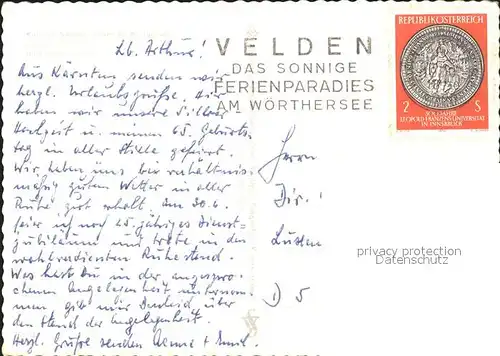 Lb. Arthur!
Aus Kärnten senden wir
herzl. Urlaubsgrüße. Hier
haben wir unsere Silber
Hochzeit u. meinen 65. Geburts-
tag in aller Stille gefeiert.
Wir haben uns bei verhältnis-
mäßig gutem Wetter in aller
Ruhe gut erholt. Am 30.6.
feire ich noch 45 jähriges Dienst-
jubiläum und trete in den
wohlverdienten Ruhestand.
Was hast Du in der angespro-
chenen Angelegenheit unternom-
men gib mir Bescheid über
den Stand der Angelegenheit.
Herzl. Grüße senden + Emil.
VELDEN
DAS SONNIGE
FERIENPARADIES
AM WÖRTHERSEE
REPUBLIK ÖSTERREICH
2 S
300 JAHRE
LEOPOLD-FRANZENS-UNIVERSITÄT
IN INNSBRUCK
Herrn
Dir.
D 5
privacy protection
Datenschutz